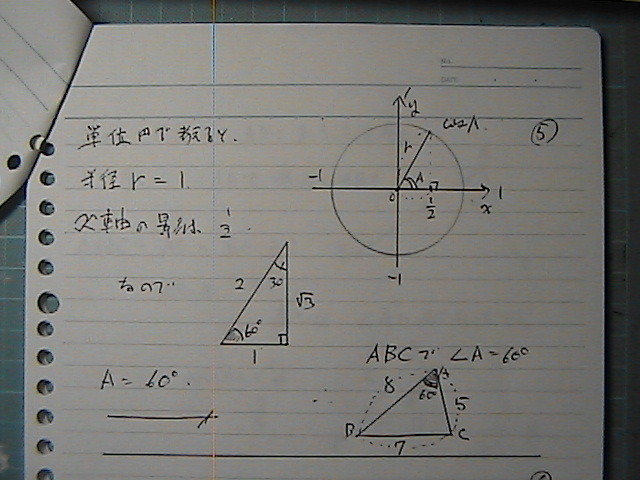 No.
DATE
⑤
y
cosA
単位円で考えると、
r
A
-1
1
半径 r = 1
0
1/2
x
x軸の長さは 1/2
-1
なので
2
30
√3
60°
1
ABCで ∠A=60°
A = 60°.
8
A
60°
5
B
C
7